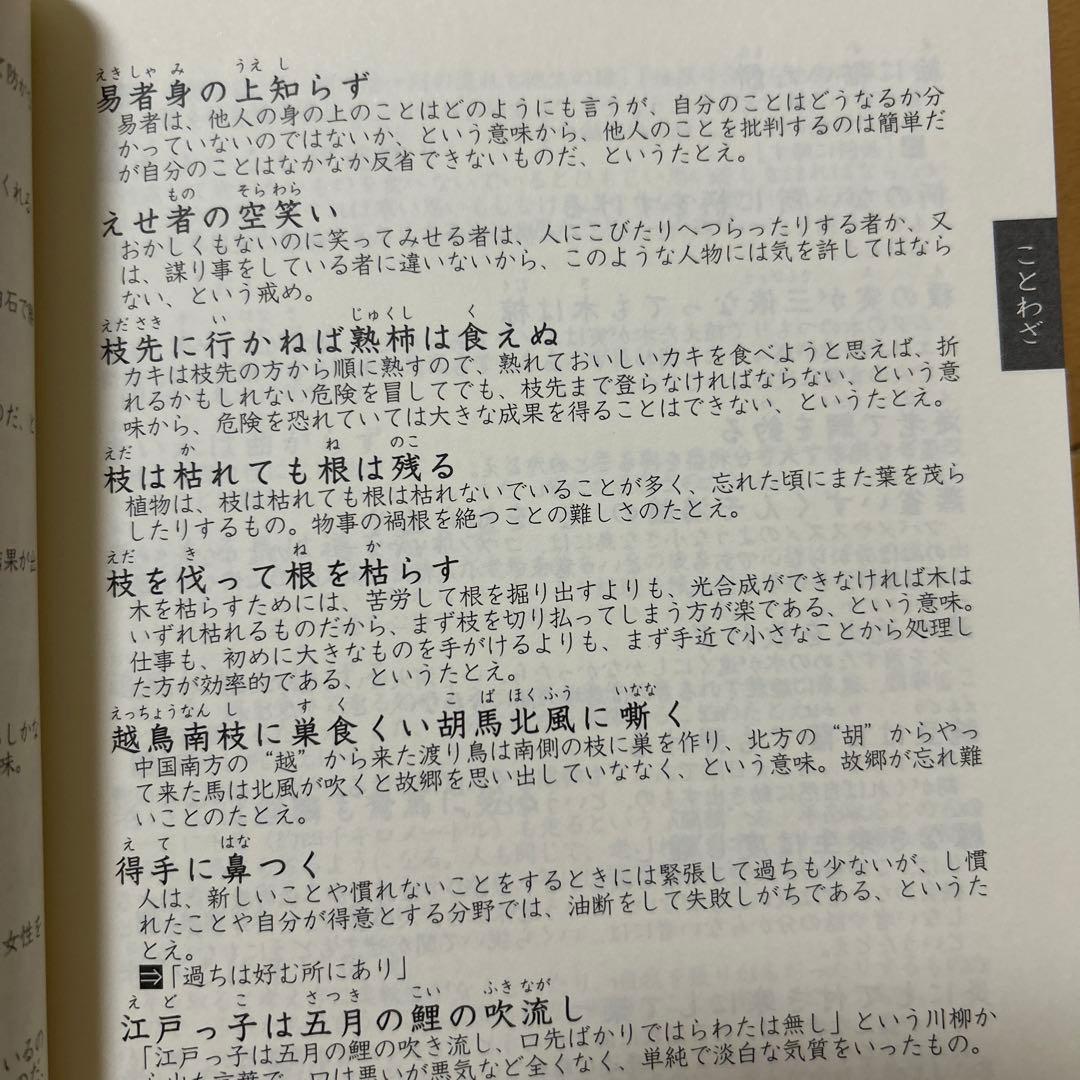 えきしゃみ うえし
易者身の上知らず
易者は、他人の身の上のことはどのようにも言うが、自分のことはどうなるか分
かっていないのではないか、という意味から、他人のことを批判するのは簡単だ
が自分のことはなかなか反省できないものだ、というたとえ。
もの そらわら
えせ者の空笑い
おかしくもないのに笑ってみせる者は、人にこびたりへつらったりする者か、又
は、謀り事をしている者に違いないから、このような人物には気を許してはなら
ない、という戒め。
えださき い じゅくし く
枝先に行かねば熟柿は食えぬ
カキは枝先の方から順に熟すので、熟れておいしいカキを食べようと思えば、折
れるかもしれない危険を冒してでも、枝先まで登らなければならない、という意
味から、危険を恐れていては大きな成果を得ることはできない、というたとえ。
えだ か ね のこ
枝は枯れても根は残る
植物は、枝は枯れても根は枯れないでいることが多く、忘れた頃にまた葉を茂ら
したりするもの。物事の禍根を絶つことの難しさのたとえ。
えだ き ね か
枝を伐って根を枯らす
木を枯らすためには、苦労して根を掘り出すよりも、光合成ができなければ木は
いずれ枯れるものだから、まず枝を切り払ってしまう方が楽である、という意味。
仕事も、初めに大きなものを手がけるよりも、まず手近で小さなことから処理し
た方が効率的である、というたとえ。
えっちょうなんし す く こ ば ほくふう いなな
越鳥南枝に巣食くい胡馬北風に嘶く
中国南方の“越”から来た渡り鳥は南側の枝に巣を作り、北方の“胡”からやっ
て来た馬は北風が吹くと故郷を思い出していななく、という意味。故郷が忘れ難
いことのたとえ。
え て はな
得手に鼻つく
人は、新しいことや慣れないことをするときには緊張して過ちも少ないが、し慣
れたことや自分が得意とする分野では、油断をして失敗しがちである、というた
とえ。
⇒「過ちは好む所にあり」
え ど こ さつき こい ふきなが
江戸っ子は五月の鯉の吹流し
「江戸っ子は五月の鯉の吹き流し、口先ばかりではらわたは無し」という川柳か
ら出た言葉で、口は悪いが悪気など全くなく、単純で淡白な気質をいったもの。
ことわざ